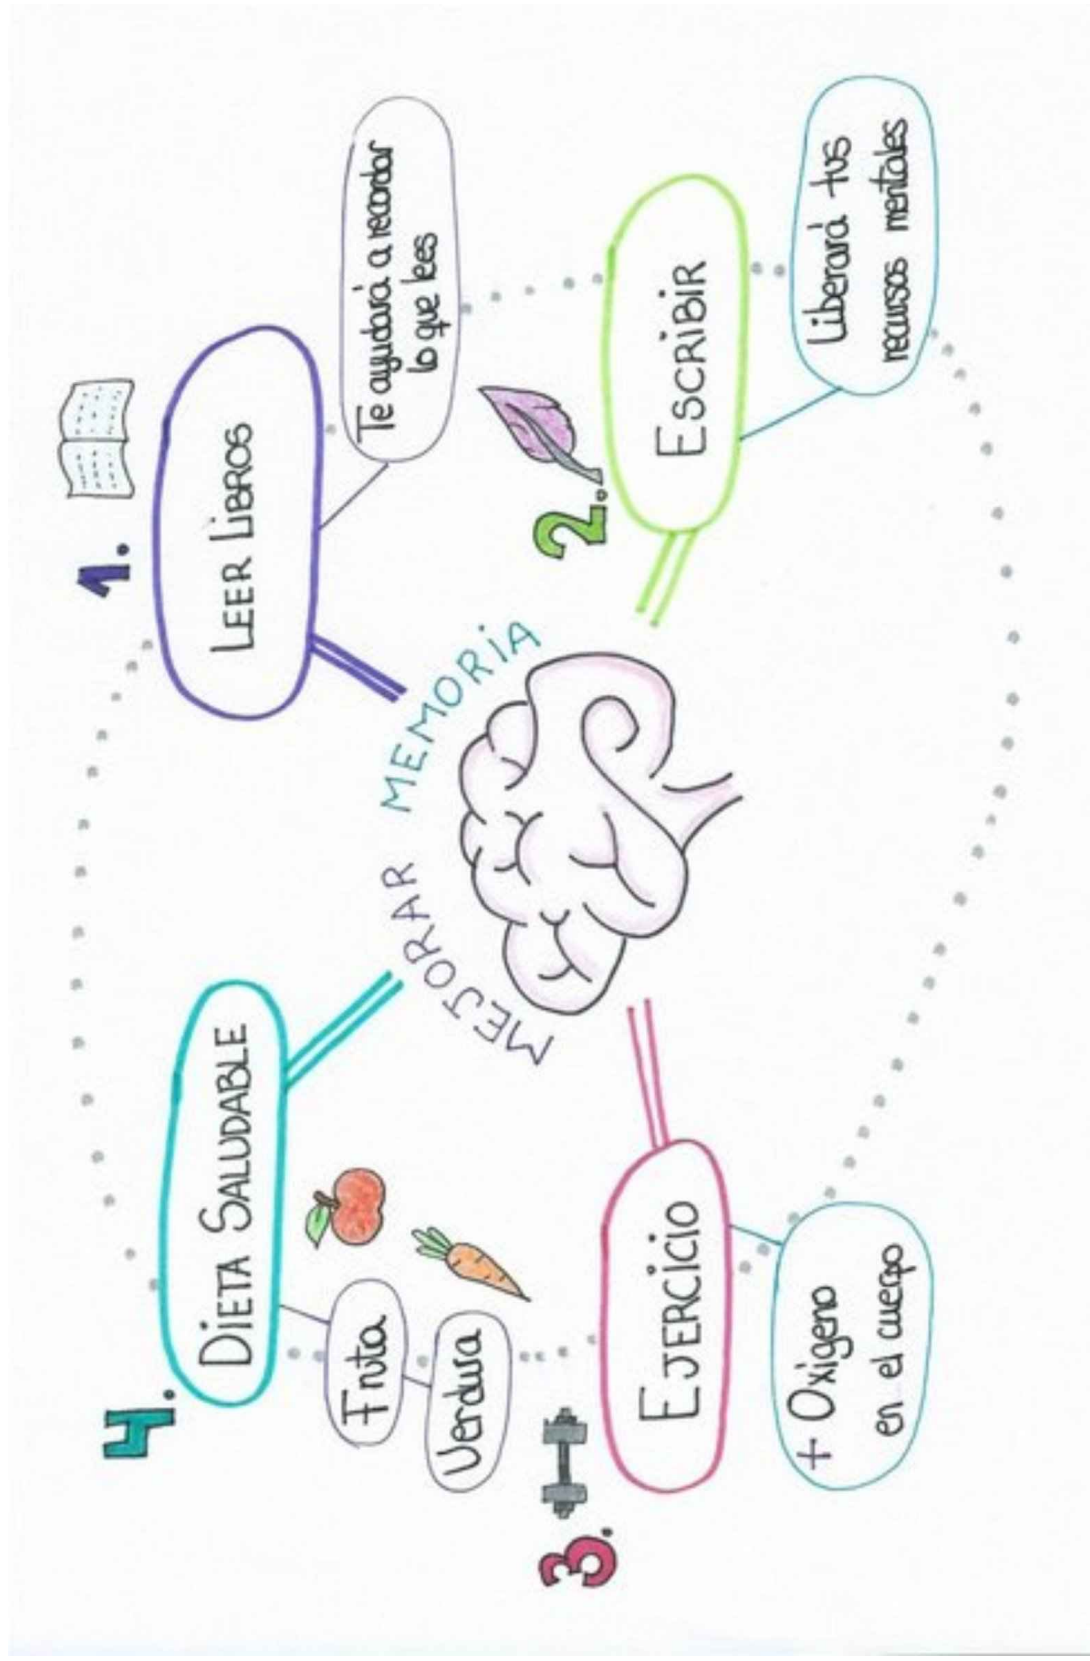 MEJORAR MEMORIA
1.
LEER LIBROS
Te ayudará a recordar
lo que lees
2.
ESCRIBIR
Liberará tus
recursos mentales
3.
EJERCICIO
+ Oxígeno
en el cuerpo
4.
DIETA SALUDABLE
Fruta
Verdura